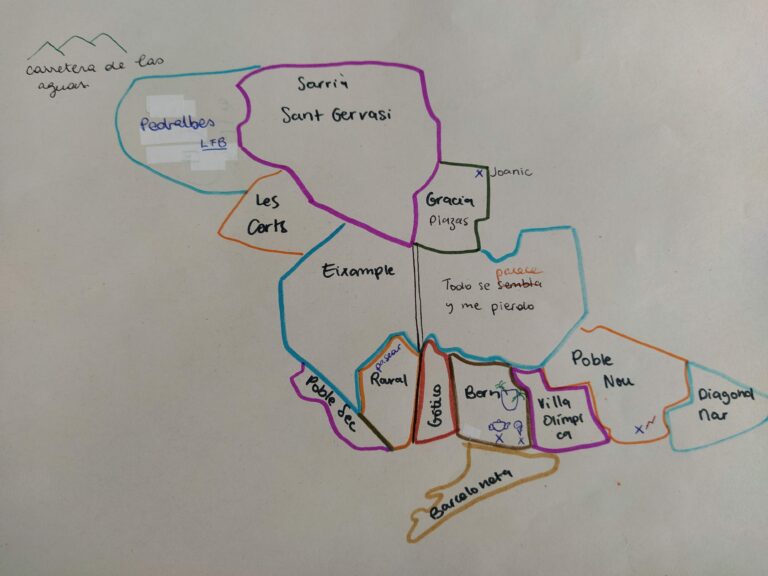 carretera de las
aguas
Sarrià
Sant Gervasi
Pedralbes
LFB
Les
Corts
x Joanic
Gracia
Plazas
Eixample
parece
Todo se sembla
y me pierdo
Poble Sec
pasear
Raval
Gótico
Born
x x
Villa
Olímpi
ca
Poble
Nou
x
Diagonal
Mar
Barceloneta